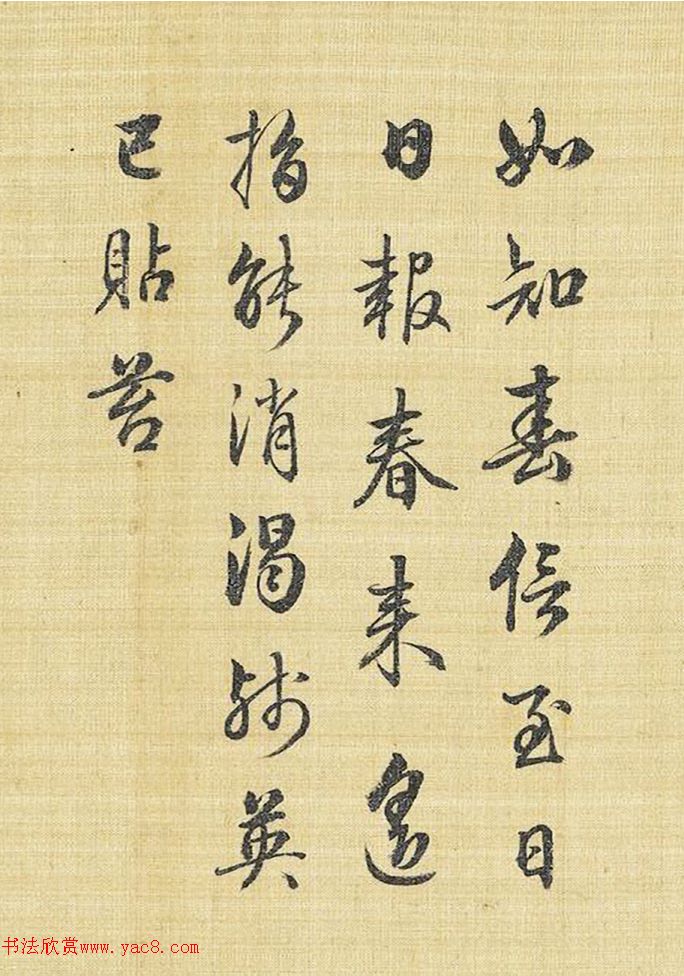 如知春信至日
日報春来遙
指能消渴殘英
已貼苔
书法欣赏www.yac8.com